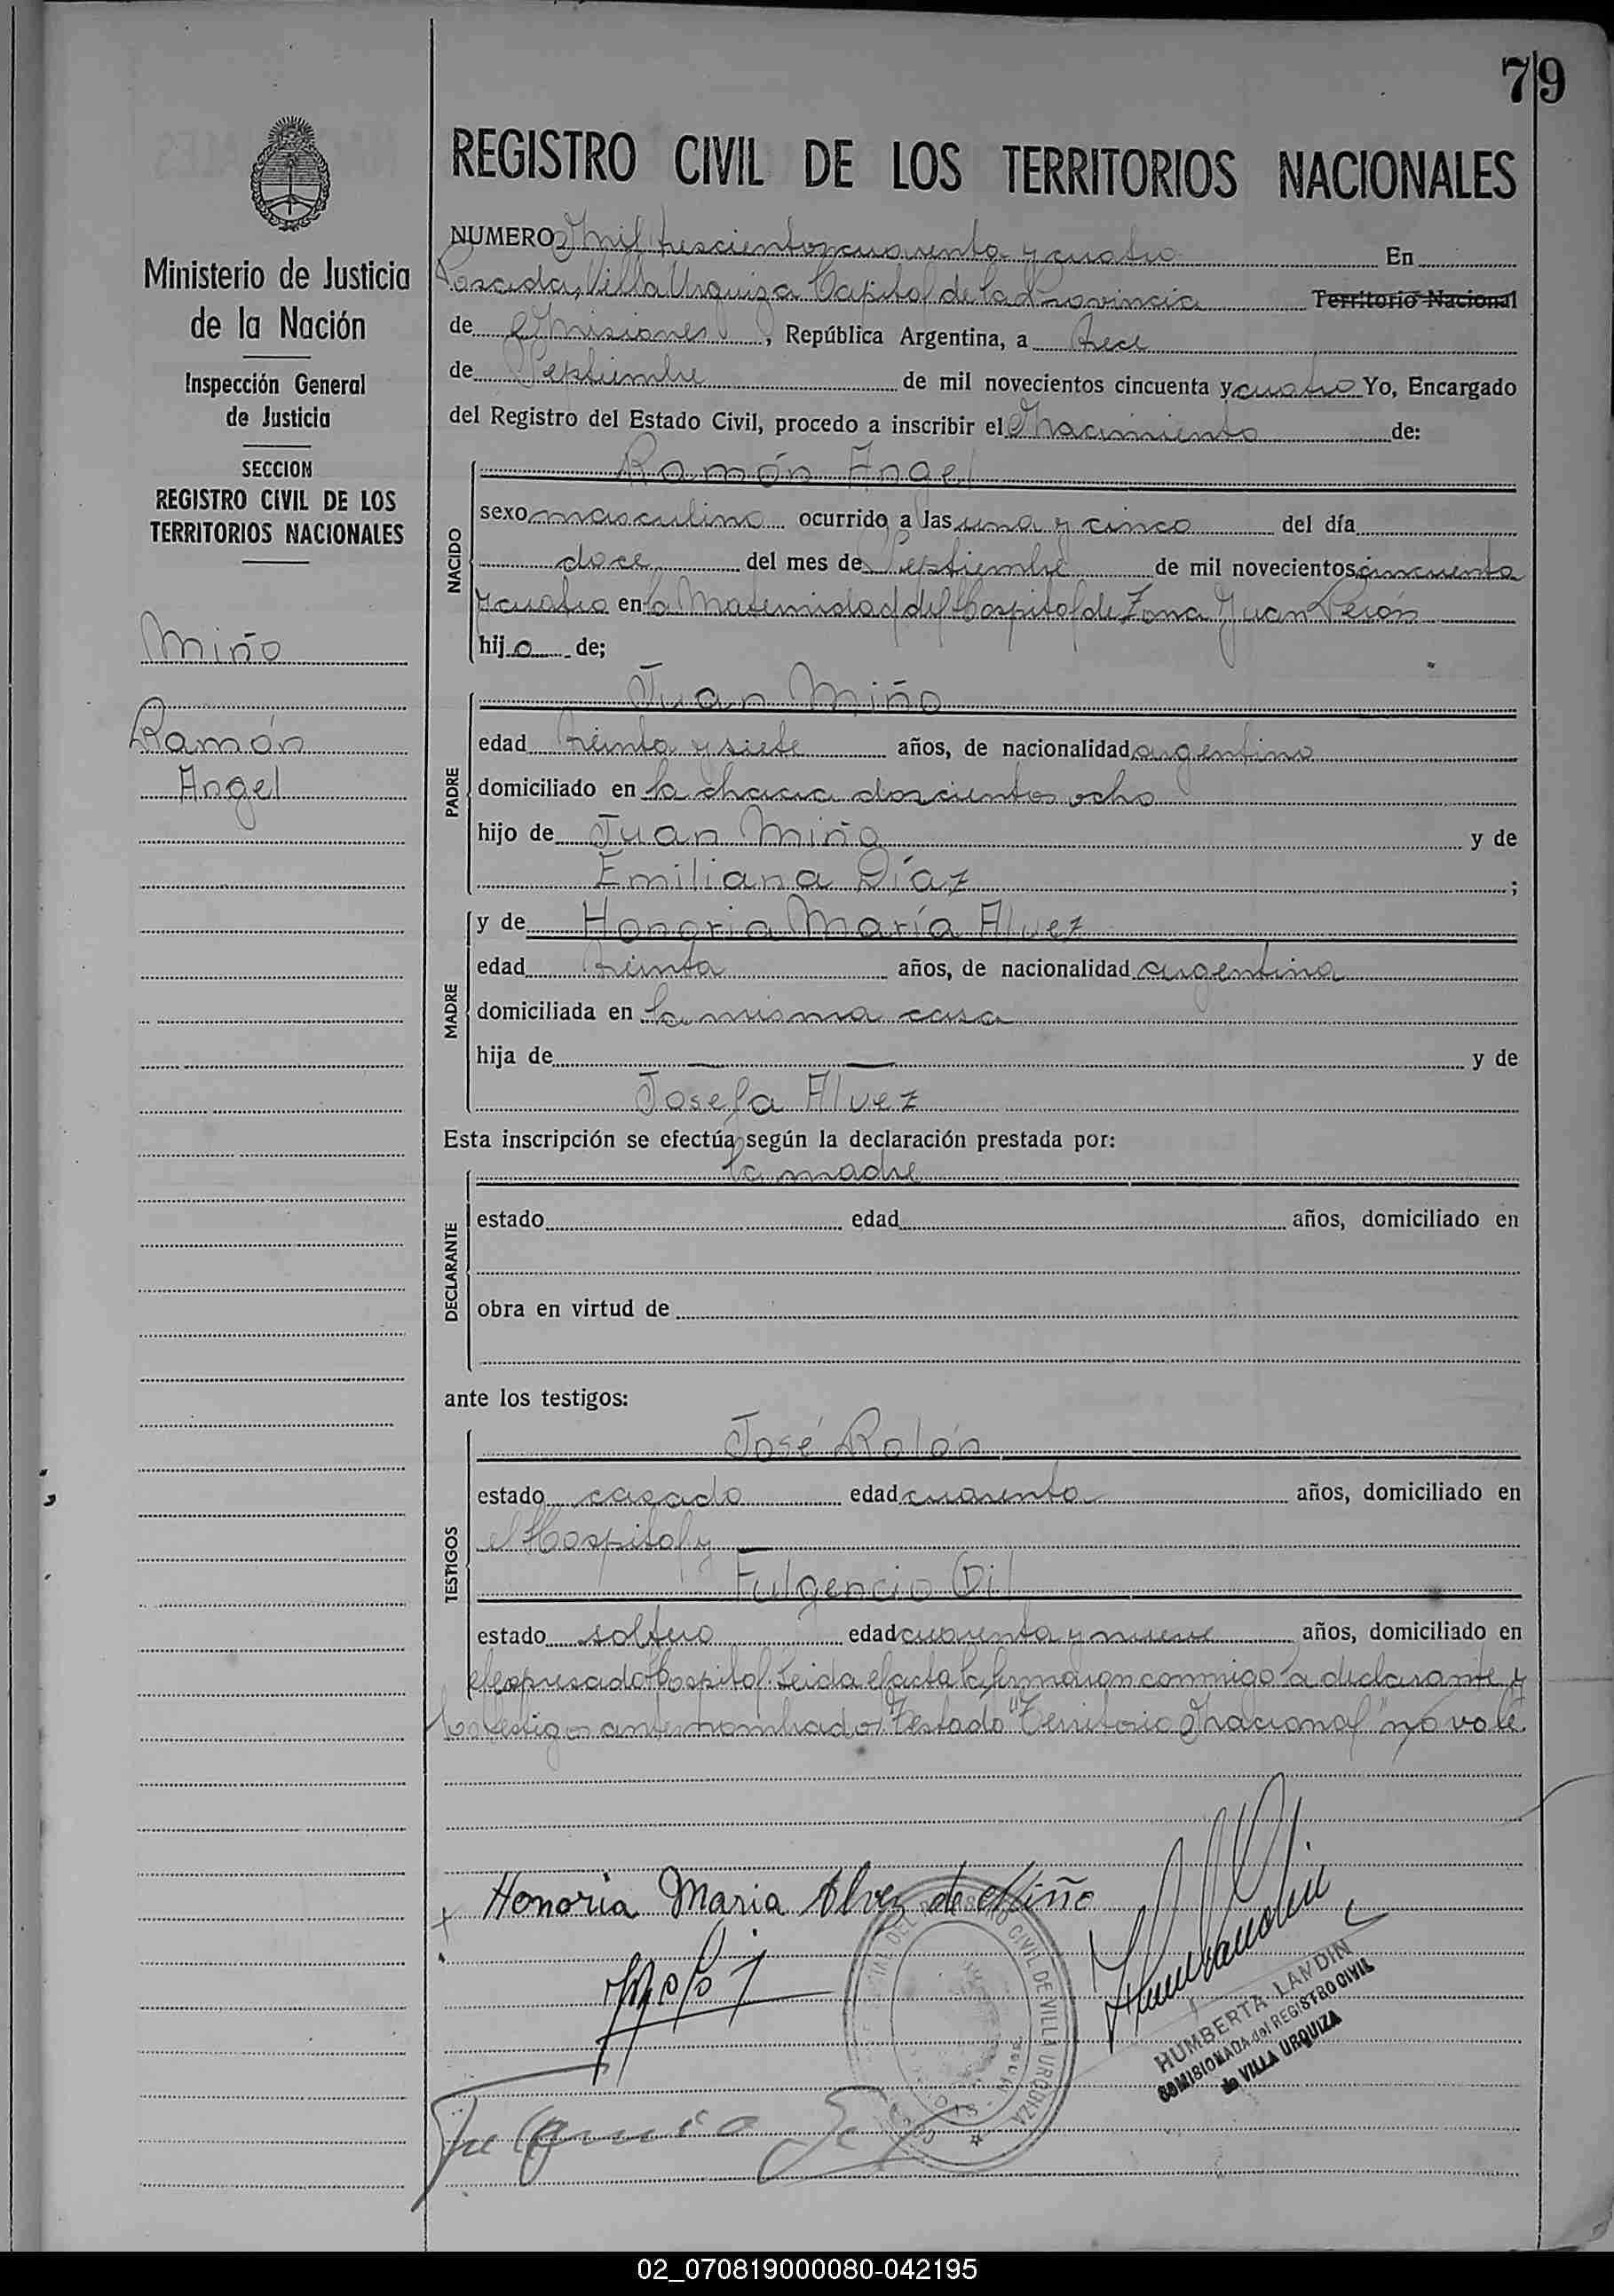 79
REGISTRO CIVIL DE LOS TERRITORIOS NACIONALES
Ministerio de Justicia
de la Nación
Inspección General
de Justicia
SECCION
REGISTRO CIVIL DE LOS
TERRITORIOS NACIONALES
Miño
Ramón
Angel
NUMERO Mil trescientos cuarenta y cuatro En
Posadas, Villa Urquiza Capital de la Provincia Territorio Nacional
de Misiones, República Argentina, a trece
de Septiembre de mil novecientos cincuenta y cuatro Yo, Encargado
del Registro del Estado Civil, procedo a inscribir el Nacimiento de:
NACIDO
Ramón Angel
sexo masculino ocurrido a las una y cinco del día
doce del mes de Septiembre de mil novecientos cincuenta
y cuatro en la Maternidad del Hospital de Zona Juan Perón
hijo de;
PADRE
Juan Miño
edad treinta y siete años, de nacionalidad argentino
domiciliado en la chacra doscientos ocho
hijo de Juan Miño y de
Emiliana Díaz ;
MADRE
y de Honoria María Alvez
edad treinta años, de nacionalidad argentina
domiciliada en la misma casa
hija de — — y de
Josefa Alvez
Esta inscripción se efectúa según la declaración prestada por:
DECLARANTE
la madre
estado edad años, domiciliado en
obra en virtud de
ante los testigos:
TESTIGOS
José Rolón
estado casado edad cuarenta años, domiciliado en
el Hospital y —
Fulgencio Gil
estado soltero edad cuarenta y nueve años, domiciliado en
el expresado Hospital. Leida el acta la firmaron conmigo la declarante y
los testigos antes nombrados. Testado "Territorio Nacional" no vale.
Honoria Maria Alvez de Miño
HUMBERTA LANDIN
COMISIONADA del REGISTRO CIVIL
de VILLA URQUIZA
DEL REGISTRO CIVIL DE VILLA URQUIZA
02_070819000080-042195